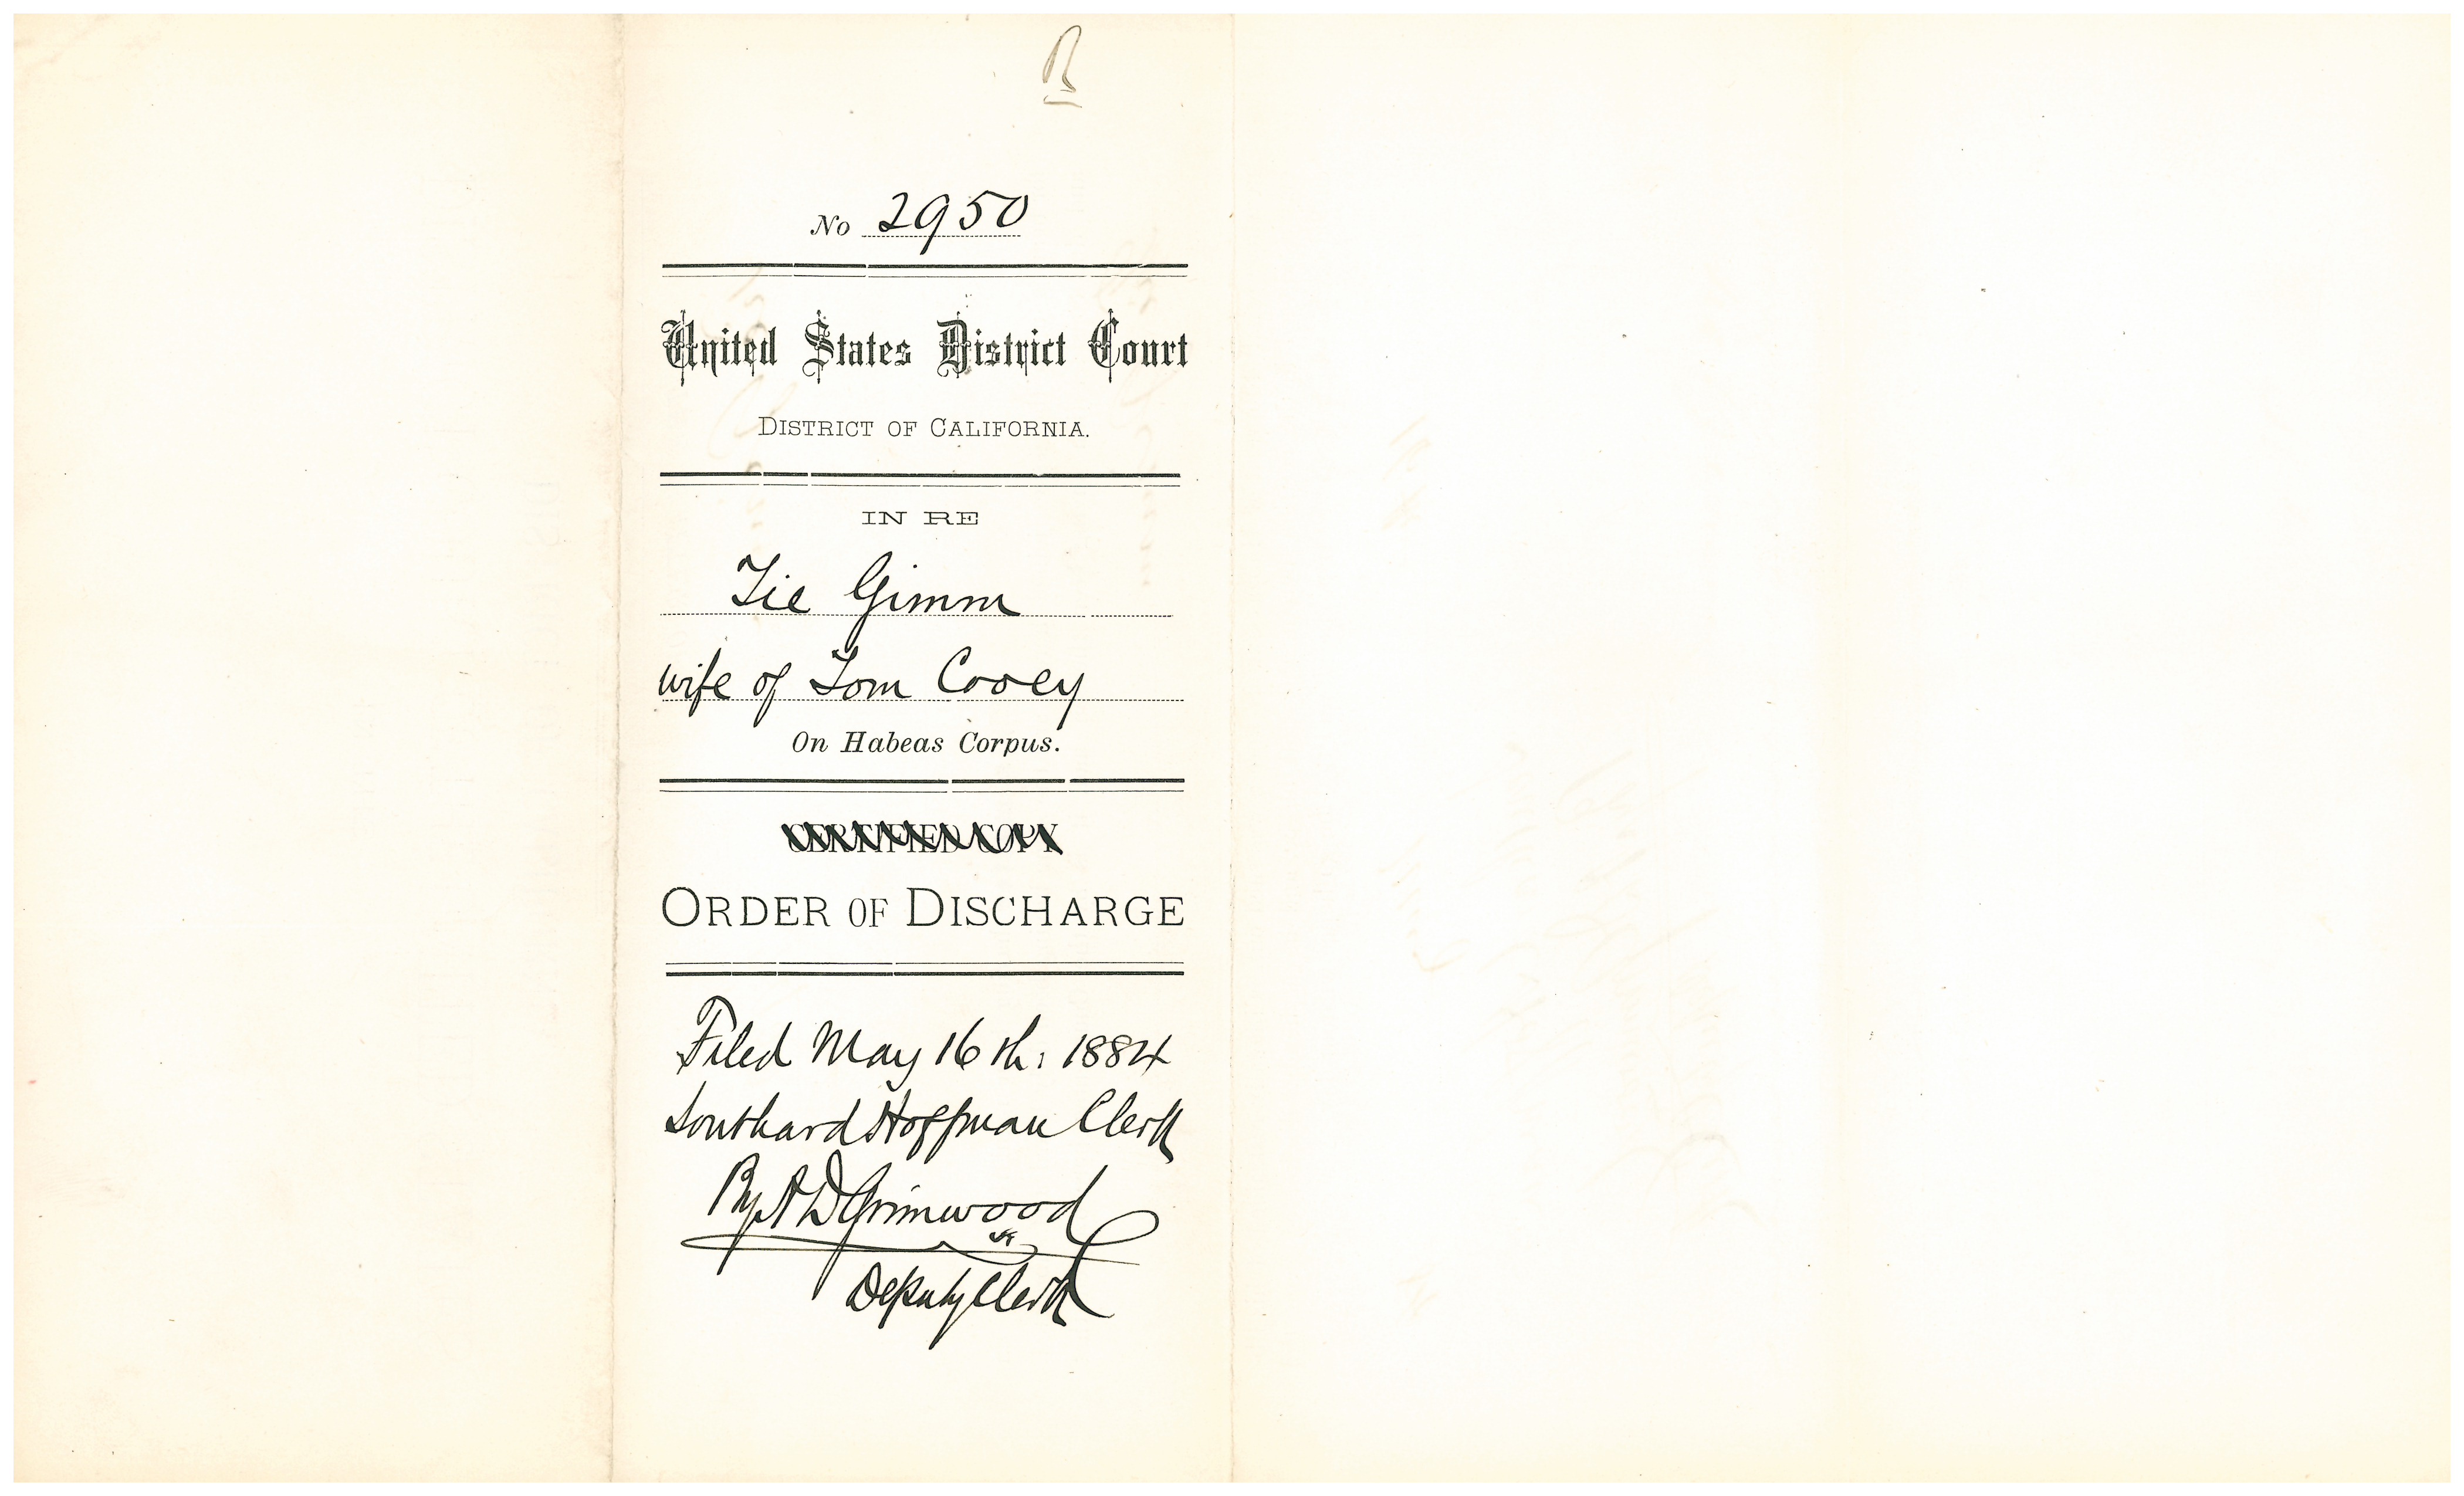 B
No 2950
United States District Court
DISTRICT OF CALIFORNIA.
IN RE
Tie Gimm
wife of Tom Cooey
On Habeas Corpus.
CERTIFIED COPY
ORDER OF DISCHARGE
Filed May 16th: 1884
Southard Hoffman Clerk
By A D Grimwood
Deputy Clerk